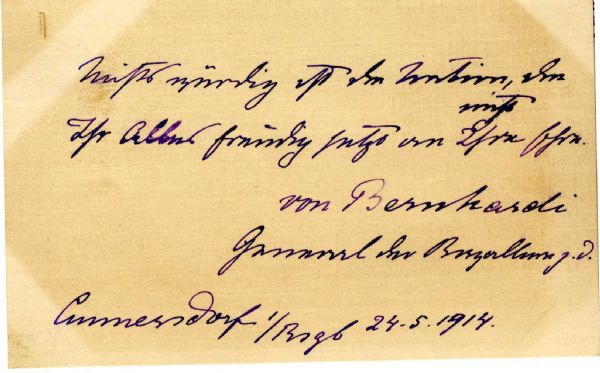 Nichts würdig ist die Nation, die
nicht
Ihr Alles freudig setzt an Ihre Ehre.
von Bernhardi
General der Kavallerie z. D.
Cunnersdorf i/Rsgb 24.5.1914.